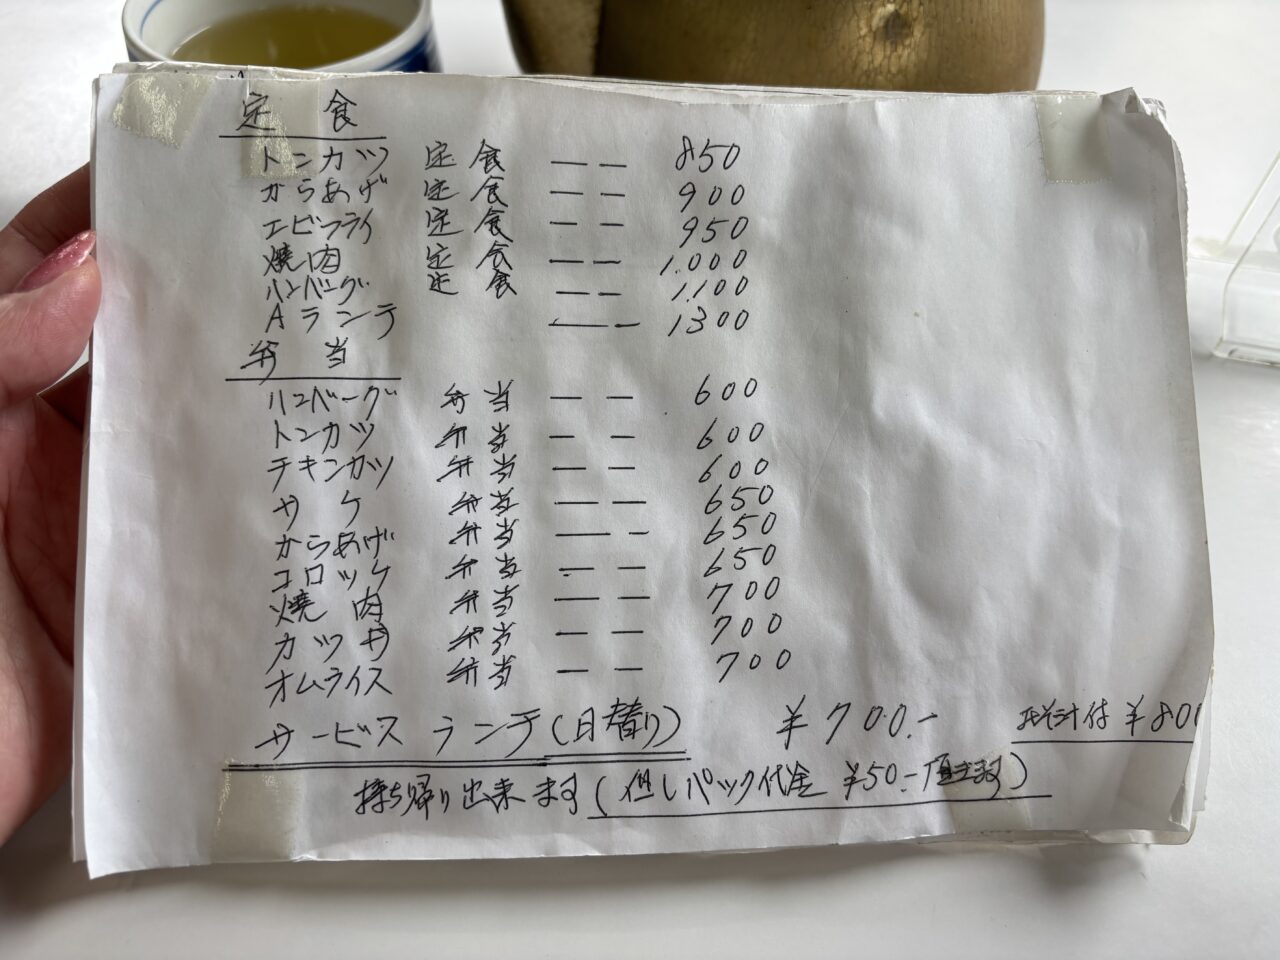 定食
トンカツ 定食 ―― 850
からあげ 定食 ―― 900
エビフライ 定食 ―― 950
焼肉 定食 ―― 1.000
ハンバーグ 定食 ―― 1,100
Aランチ ―― 1300
弁当
ハンバーグ 弁当 ―― 600
トンカツ 弁当 ―― 600
チキンカツ 弁当 ―― 600
サケ 弁当 ―― 650
からあげ 弁当 ―― 650
コロッケ 弁当 ―― 650
焼肉 弁当 ―― 700
カツ丼 弁当 ―― 700
オムライス 弁当 ―― 700
サービスランチ(日替り) ¥700.- みそ汁付 ¥800
持ち帰り出来ます(但しパック代金 ¥50.-頂きます)